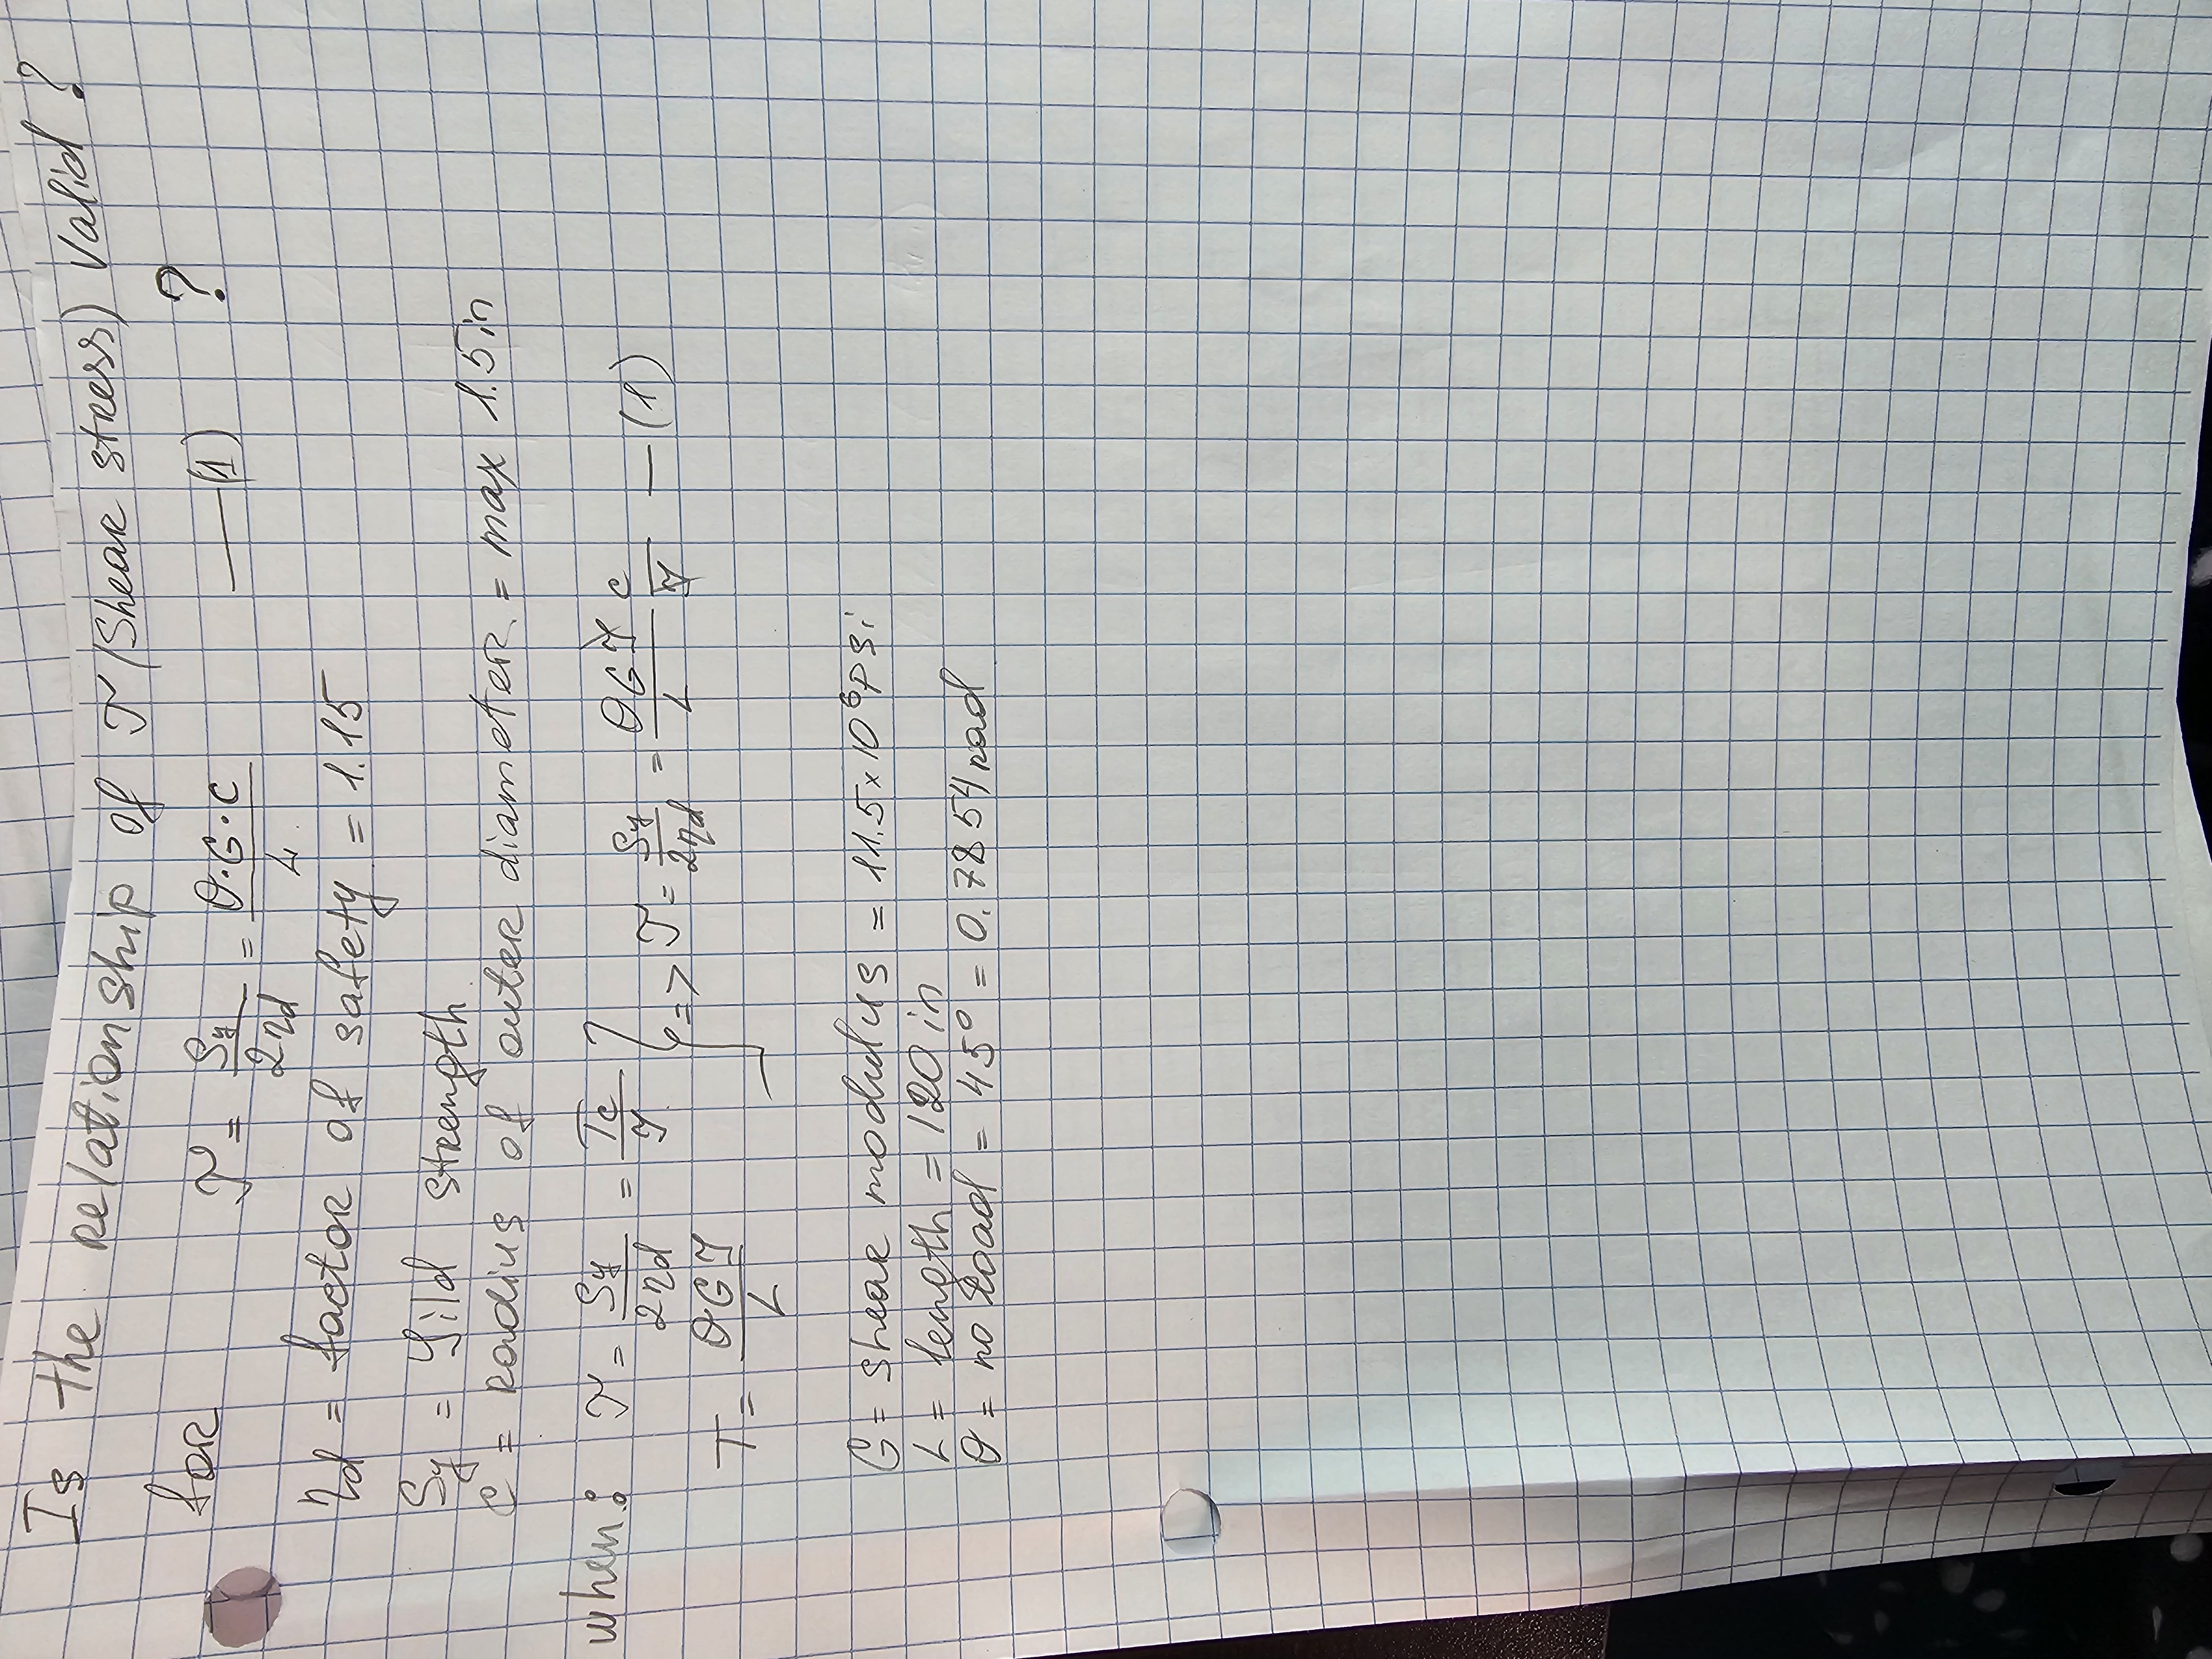 Is the relationship of τ (Shear stress) valid?
for τ = Sy/2ηd = θ·G·c/L —(1) ?
ηd = factor of safety = 1.15
Sy = Yild strength
c = radius of outer diameter = max 1.5in
when: τ = Sy/2ηd = Tc/J } => τ = Sy/2ηd = θGJ/L c/J — (1)
T = θGJ/L
G = shear modulus = 11.5×10⁶psi
L = length = 120in
θ = no load = 45° = 0.7854rad